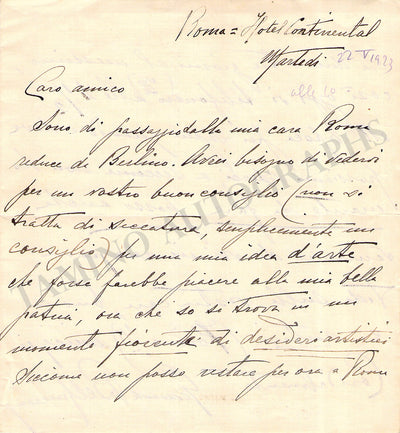 Roma = Hotel Continental
Martedi 22 V 1923
Caro amico
Sono di passaggio dalla mia cara Roma
reduce da Berlino. Avrei bisogno di vedervi
per un vostro buon consiglio (non si
tratta di seccatura, semplicemente un
consiglio) per una mia idea d'arte
che forse farebbe piacere alla mia bella
patria, ora che so si trova in un
momento fiorente di desideri artistici
Siccome non posso restare per ora a Roma
TAMINO AUTOGRAPHS